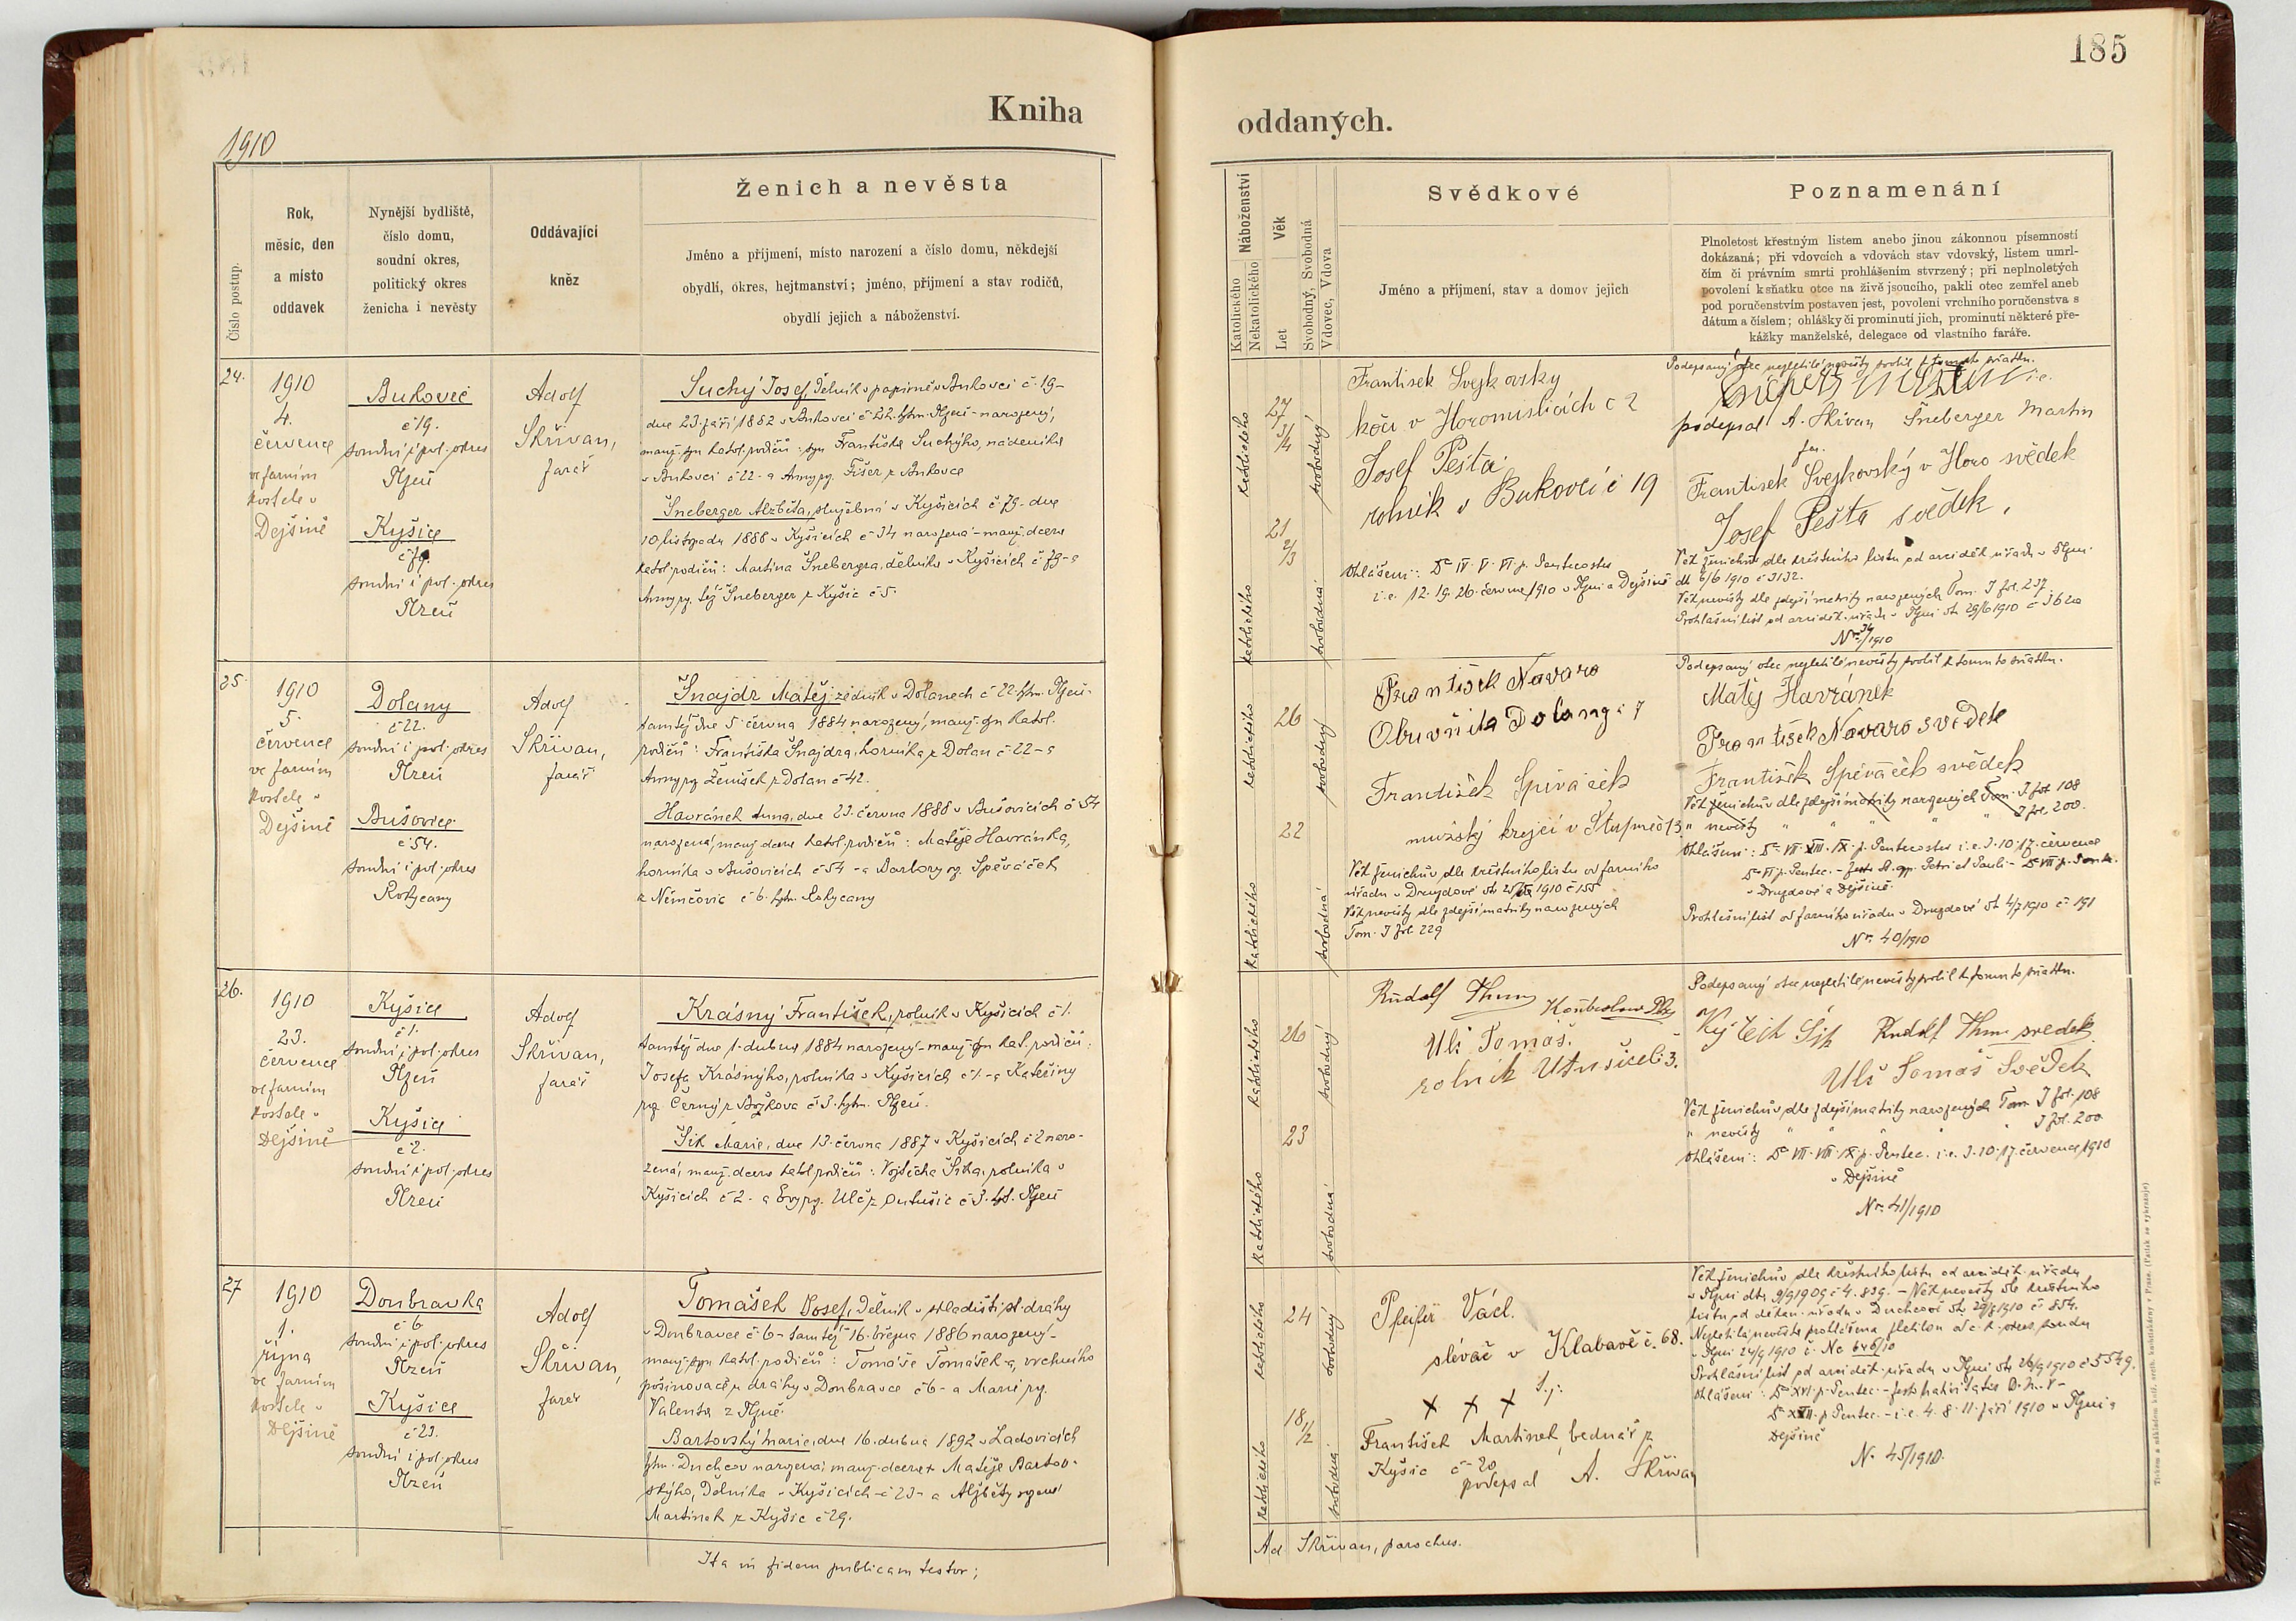 185
Kniha
oddaných.
1910
Číslo postup.
Rok,
měsíc, den
a místo
oddavek
Nynější bydliště,
číslo domu,
soudní okres,
politický okres
ženicha i nevěsty
Oddávající
kněz
Ženich a nevěsta
Jméno a příjmení, místo narození a číslo domu, někdejší
obydlí, okres, hejtmanství; jméno, příjmení a stav rodičů,
obydlí jejich a náboženství.
24.
1910
4.
července
ve farním
kostele v
Dejšině
Bukovec
č 19.
soudní i pol. okres
Plzeň
Kyšice
č 79.
soudní i pol. okres
Plzeň
Adolf
Skřivan,
farář
Suchý Josef, dělník v papírně v Bukovci č. 19-
dne 23. září 1882 v Bukovci č 22. hejtm. Plzeň - narozený,
manž. syn katol. rodičů: syn Františka Suchýho, nádeníka
v Bukovci č 22 - a Anny roz. Fišer z Bukovce
Šneberger Alžběta, služebná v Kyšicích č 79 - dne
10 listopadu 1888 v Kyšicích č 34 narozená - manž. dcera
katol. rodičů: Martina Šnebergra, dělníka v Kyšicích č 79 - a
Anny roz. též Šneberger z Kyšic č 5.
25.
1910
5.
července
ve farním
kostele v
Dejšině
Dolany
č 22.
soudní i pol. okres
Plzeň
Bušovice
č 54.
soudní i pol. okres
Rokycany
Adolf
Skřivan,
farář
Šnajdr Matěj, zedník v Dolanech č 22. hejtm. Plzeň -
tamtéž dne 5. června 1884 narozený, manž. syn katol.
rodičů: Františka Šnajdra, horníka z Dolan č 22 - a
Anny roz. Ženíšek z Dolan č 42.
Havránek Anna, dne 23. června 1888 v Bušovicích č 54
narozená, manž. dcera katol. rodičů: Matěje Havránka,
horníka v Bušovicích č 54 - a Barbory roz. Spěváček
z Němčovic č 6. hejtm. Rokycany
26.
1910
23.
července
ve farním
kostele v
Dejšině
Kyšice
č 1.
soudní i pol. okres
Plzeň
Kyšice
č 2.
soudní i pol. okres
Plzeň
Adolf
Skřivan,
farář
Krásný František, rolník v Kyšicích č 1.
tamtéž dne 1. dubna 1884 narozený - manž. syn kat. rodičů:
Josefa Krásnýho, rolníka v Kyšicích č 1 - a Kateřiny
roz. Černý z Božkova č 3. hejtm. Plzeň.
Šik Marie, dne 13. června 1887 v Kyšicích č 2 naro-
zená, manž. dcera katol. rodičů: Vojtěcha Šika, rolníka v
Kyšicích č 2 - a Evy roz. Ulč z Outušic č 3. hejt. Plzeň
27
1910
1.
října
ve farním
kostele v
Dejšině
Doubravka
č 6
soudní i pol. okres
Plzeň
Kyšice
č 23.
soudní i pol. okres
Plzeň
Adolf
Skřivan,
farář
Tomášek Josef, dělník v skladišti st. dráhy
v Doubravce č. 6 - tamtéž 16. března 1886 narozený -
manž. syn katol. rodičů: Tomáše Tomášek-a, vrchního
pošinovače u dráhy v Doubravce č 6 - a Marie roz.
Valenta z Plzně.
Bartovský Marie, dne 16. dubna 1892 v Ladovicích
hejtm. Duchcov narozená, manž. dcera Matěje Bartov-
skýho, dělníka v Kyšicích č 23 - a Alžběty rozené
Martínek z Kyšic č 29.
Ita in fidem publicam testor;
Náboženství
Katolického
Nekatolického
Věk
Let
Svobodný, Svobodná
Vdovec, Vdova
Svědkové
Jméno a příjmení, stav a domov jejich
Poznamenání
Plnoletost křestným listem anebo jinou zákonnou písemností
dokázaná; při vdovcích a vdovách stav vdovský, listem umrl-
čím či právním smrti prohlášením stvrzený; při neplnoletých
povolení k sňatku otce na živě jsoucího, pakli otec zemřel aneb
pod poručenstvím postaven jest, povolení vrchního poručenstva s
dátum a číslem; ohlášky či prominutí jich, prominutí některé pře-
kážky manželské, delegace od vlastního faráře.
katolického
27
3/4
svobodný
katolického
21
2/3
svobodná
František Svejkovsky
kočí v Horomislicích č 2
Josef Pešta
rolník v Bukovci č 19
Ohlášení: D IV. V. VI. p. Pentecostes
i. e. 12. 19. 26. června 1910 v Plzni a Dejšině
Podepsaný otec nezletilé nevěsty svolil k tomuto sňatku.
podepsal A. Skřivan Šneberger Martin
far.
František Svejkovský v Horo svědek
Josef Pešta svědek,
Věk ženichův dle křestního listu od arciděk. úřadu v Plzni
dto 6/6 1910 č 3132.
Věk nevěsty dle zdejší matriky narozených Tom. I fol. 237
Prohlášní list od arciděk. úřadu v Plzni dto 29/6 1910 č 3620
Nr. 34/1910
katolického
26
svobodný
katolického
22
svobodná
František Navaro
Obuvníka Dolany č 7
František Spěváček
mužský krejčí v Stupně č 13.
Věk ženichův dle křestního listu od farního
úřadu v Druzdové dto 1910 č 155
Věk nevěsty dle zdejší matriky narozených
Tom. I fol 229
Podepsaný otec nezletilé nevěsty svolil k tomuto sňatku.
Matěj Havránek
František Navaro svědek
František Spěváček svědek
Věk ženichův dle zdejší matriky narozených Tom. I fol 108
" nevěsty " " " " I fol. 200.
Ohlášení: D VII. VIII. IX. p. Pentecostes i. e. 3. 10. 17. července
D VI p. Pentec. - festo st. app. Petri et Pauli - D VII p. Pentec.
v Druzdové a Dejšině.
Prohlášní list od farního úřadu v Druzdové dto 4/7 1910 č 191
Nr. 40/1910
katolického
26
svobodný
katolického
23
svobodná
Rudolf Thum
Ulč Tomáš.
rolník Utušice č. 3.
Podepsaný otec nezletilé nevěsty svolil k tomuto sňatku.
Rudolf Thum svedek
Ulč Tomáš Svědek
Věk ženichův dle zdejší matriky narozených Tom. I fol. 108
" nevěsty " " " " I fol. 200
Ohlášení: D VII. VIII. IX. p. Pentec. i. e. 3. 10. 17. července 1910
v Dejšině
Nr. 41/1910
katolického
24
svobodný
katolického
18 1/2
svobodná
Pfeifer Václ.
slévač v Klabavě č. 68.
+ + +
František Martínek, bednář z
Kyšic č 20
podepsal A. Skřivan
Věk ženichův dle křestního listu od arciděk. úřadu
v Plzni dto 9/9 1909 č 4.839. - Věk nevěsty dle křestního
listu od děkan. úřadu v Duchcově dto 29/8 1910 č 854.
Nezletilá nevěsta prohlášena zletilou od c. k. okres. soudu
v Plzni 24/9 1910 č. Nc 646/10
Prohlášní list od arciděk. úřadu v Plzni dto 26/9 1910 č 5549.
Ohlášení: D XVI. p. Pentec. - festo nativitatis B. M. V -
D XVII. p. Pentec. - i. e. 4. 8. 11. září 1910 v Plzni a
Dejšině
N. 45/1910.
Ad. Skřivan, parochus.